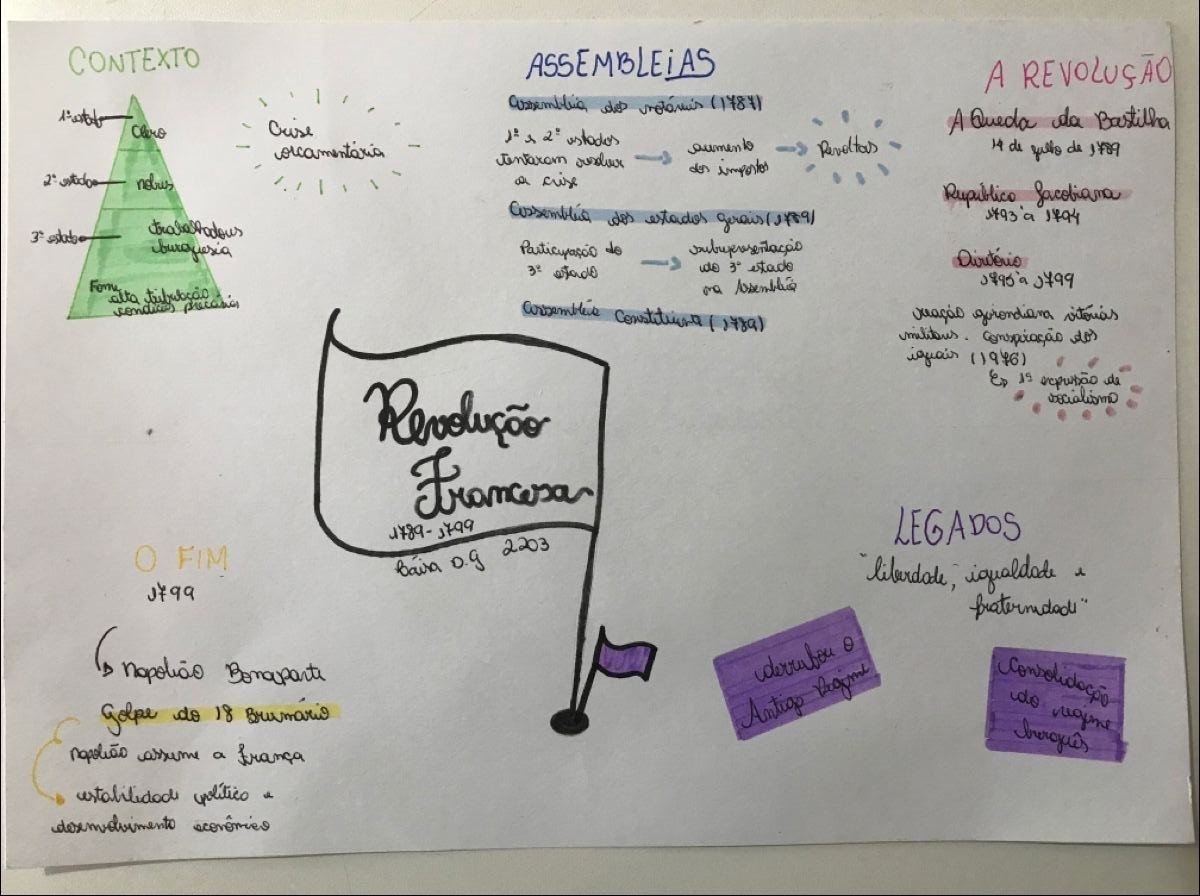 CONTEXTO
1º estado
Clero
2º estado
nobres
3º estado
trabalhadores
burguesia
Fome
alta tributação
condições precárias
Crise
orçamentária
ASSEMBLEIAS
Assembléia dos notáveis (1787)
1º e 2º estados
tentaram resolver
a crise
aumento
dos impostos
Revoltas
Assembléia dos estados gerais (1789)
Participação do
3º estado
subrepresentação
do 3º estado
na Assembléia
Assembléia Constituinte (1789)
A REVOLUÇÃO
A Queda da Bastilha
14 de julho de 1789
República Jacobiana
1793 à 1794
Diretório
1795 à 1799
reação girondiana vitórias
militares. Conspiração dos
iguais (1976)
1ª expressão de
socialismo
Revolução
Francesa
1789-1799
D.G 2203
O FIM
1799
Napoleão Bonaparte
Golpe do 18 Brumário
Napoleão assume a França
estabilidade político e
desenvolvimento econômico
LEGADOS
"liberdade, igualdade e
fraternidade"
derrubou o
Antigo Regime
Consolidação
do regime
burguês